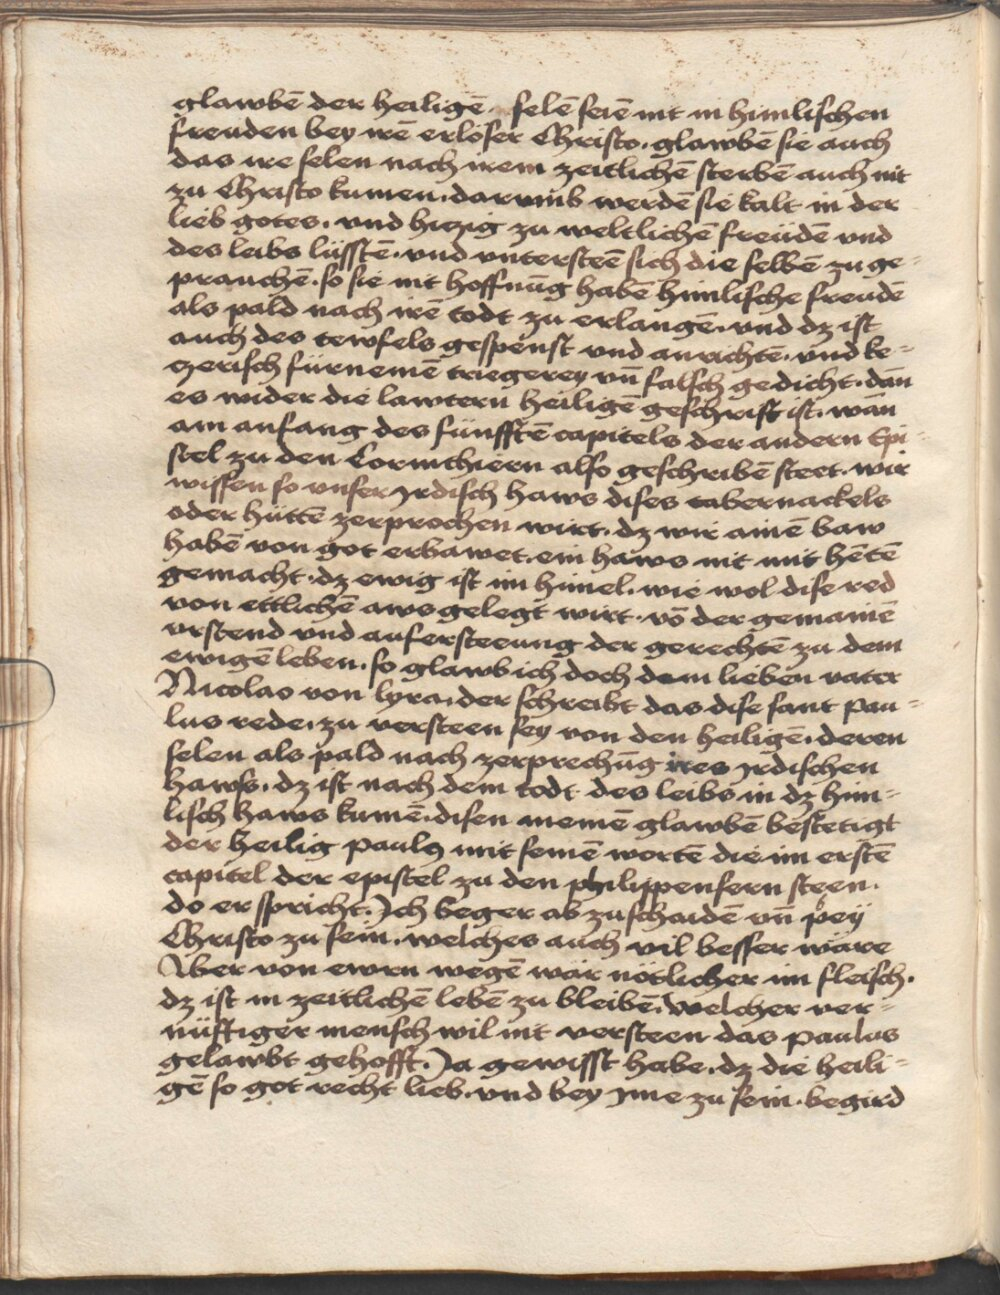 glawbē der heiligē. selē seiē nit in himlischen
freuden bey irē erlöser Christo. glawbē sie auch
das ire selen nach irem zeitlichē sterbē auch nit
zu Christo kumen. darumb werdē sie kalt in der
lieb gotes. vnd hiczig zu weltlichē freüdē vnd
des leibs lüsstē. vnd vntersteē sich die selbē zu ge-
prauchē. so sie nit hoffnūg habē himlische freudē
als pald nach irē todt zu erlangē. vnd dz ist
auch des tewfels gespenst vnd anrichtē. vnd ke-
czerisch fürnemē triegerey vn̄ falsch gedicht. dan̄
es wider die lawtern heiligē geschrift ist. wan̄
am anfang des fünfftē capitels der andern Epi-
stel zu den Corinthiern also geschribē steet. wir
wissen so vnser jrdisch haws dises tabernackels
oder hüttē zerprochen wirt. dz wir ainē baw
habē von got erbawet. ein haws nit mit hētē
gemacht. dz ewig ist im himel. wie wol dise red
von ettlichē aws gelegt wirt. vō der gemainē
vrstend vnd aufersteeung der gerechtē zu dem
ewigē leben. so glawb ich doch dem lieben vater
Nicolao von lyra. der schreibt das dise sant pau-
lus rede. zu versteen sey von den heiligē. deren
selen als pald nach zerprechūg ires jrdischen
haws. dz ist nach dem todt des leibs in dz him-
lisch haws kumē. disen meinē glawbē bestetigt
der heilig paulꝰ mit seinē wortē die im erstē
capitel der epistel zu den philippensern steen.
do er spricht. Ich beger ab zu schaidē vn̄ pey
Christo zu sein. welches auch vil besser wäre
Aber von ewrn wegē wär nötlicher im fleisch.
dz ist in zeitlichē lebē zu bleibē. Welcher ver-
nüftiger mensch wil nit versteen das paulus
gelawbt gehofft. Ja gewisst habe. dz die heili-
gē so got recht lieb. vnd bey jme zu sein. begird